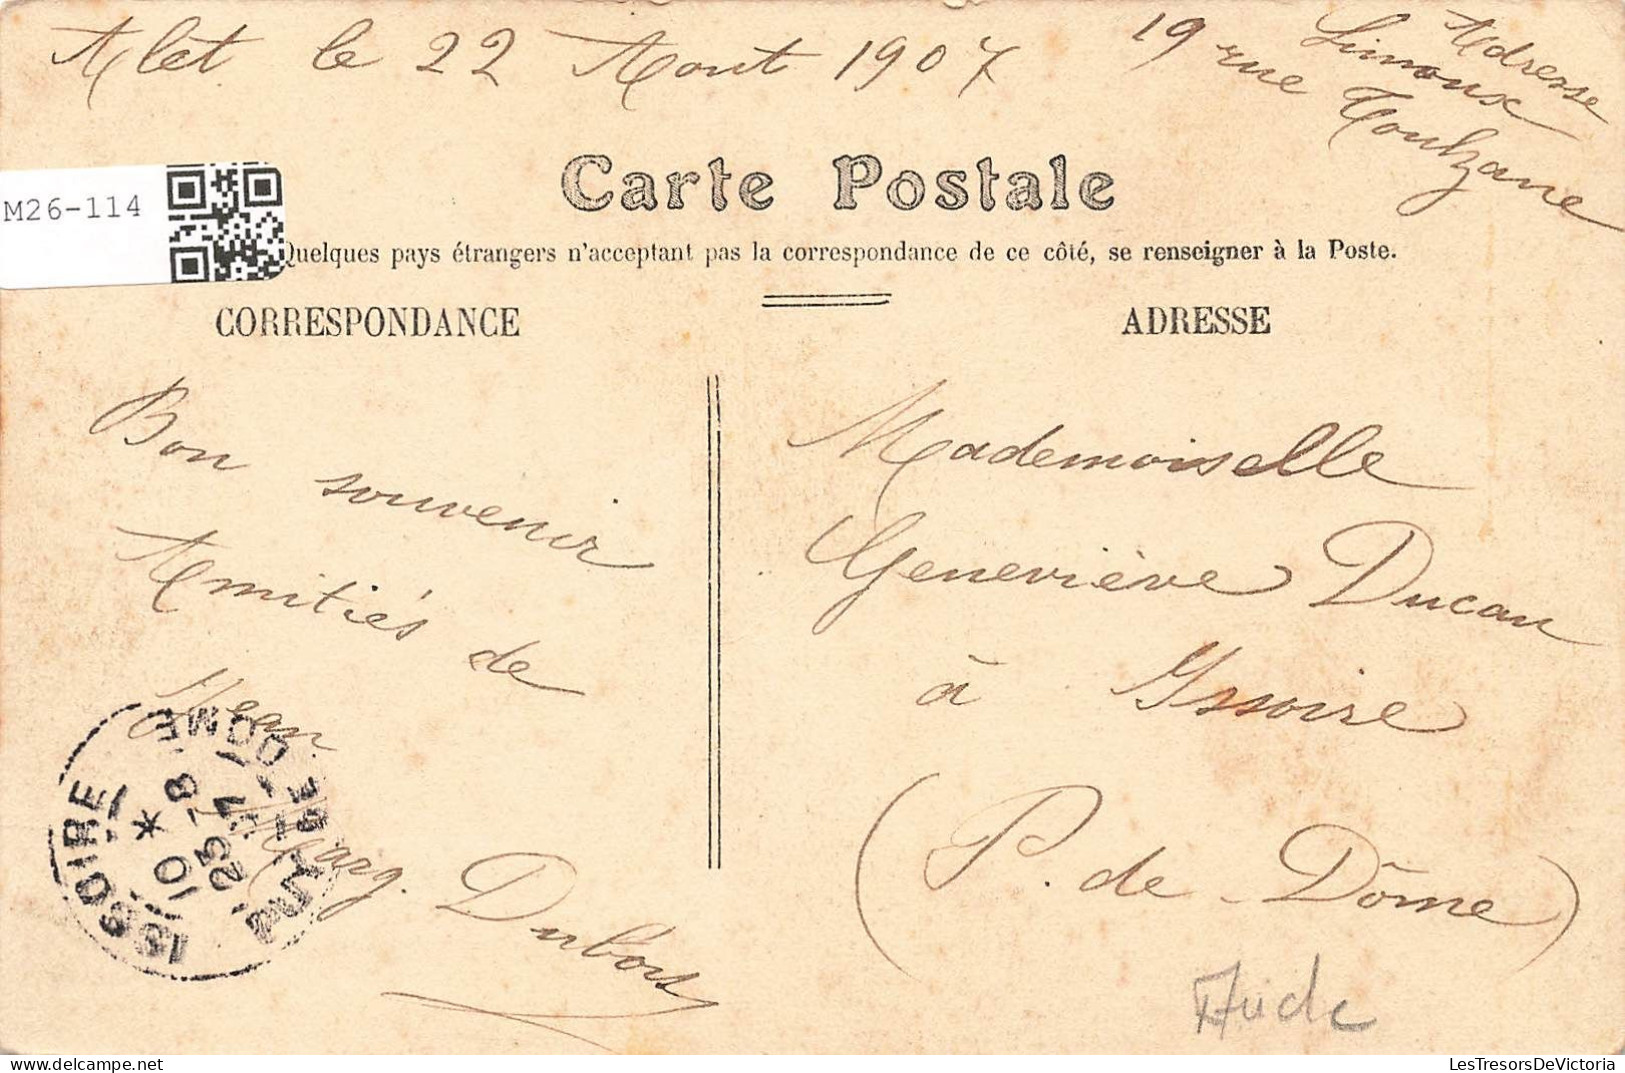 Alet le 22 Aout 1907
Adresse
Limoux
19 rue Toulzane
M26-114
Carte Postale
Quelques pays étrangers n'acceptant pas la correspondance de ce côté, se renseigner à la Poste.
CORRESPONDANCE
ADRESSE
Bon souvenir
Amitiés de
Jean
Marg. Dubois
Mademoiselle
Geneviève Ducau
à Issoire
(P. de-Dôme)
ISSOIRE
PUY DE DOME
10 *
23 - 8
07
Aude
LesTresorsDeVictoria